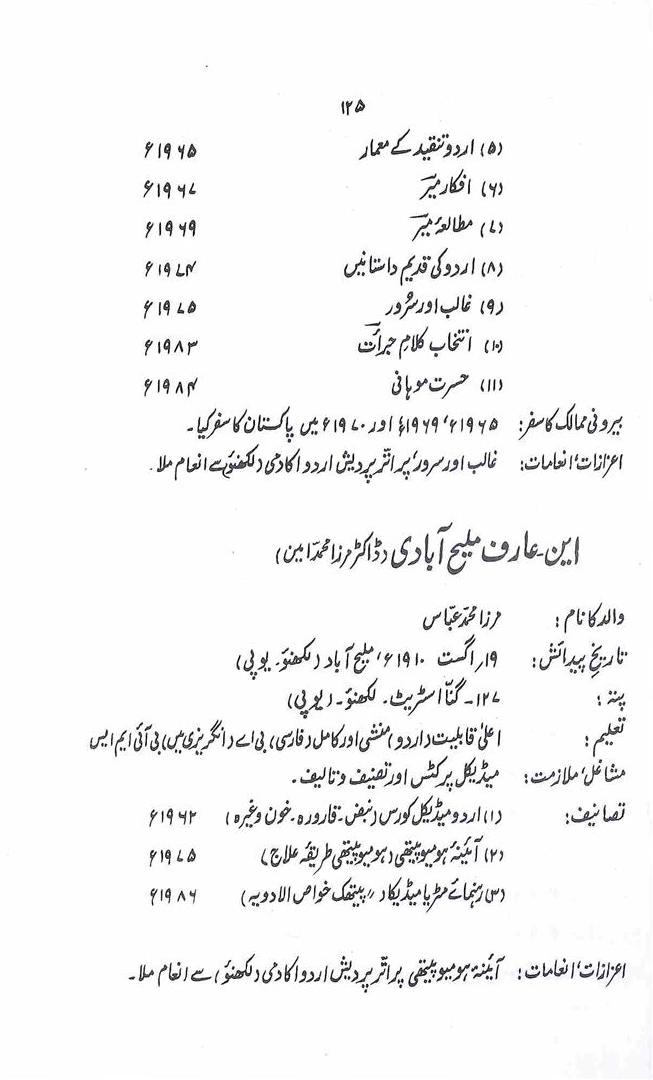 ۱۲۵
(۵) اردو تنقید کے معمار ۱۹۶۵ء
(۶) افکار میرؔ ۱۹۶۷ء
(۷) مطالعۂ میرؔ ۱۹۶۹ء
(۸) اردو کی قدیم داستانیں ۱۹۷۴ء
(۹) غالب اور سرور ۱۹۷۵ء
(۱۰) انتخاب کلامِ جرأتؔ ۱۹۸۳ء
(۱۱) حسرت موہانی ۱۹۸۴ء
بیرونی ممالک کا سفر: ۱۹۶۵ء، ۱۹۶۹ء اور ۱۹۷۰ء میں پاکستان کا سفر کیا۔
اعزازات، انعامات: غالب اور سرور، پر اتّر پردیش اردو اکادمی (لکھنؤ) سے انعام ملا۔
این۔عارف ملیح آبادی (ڈاکٹر مرزا محمد امین)
والد کا نام: مرزا محمد عبّاس
تاریخ پیدائش: ۱۹؍ اگست ۱۹۱۰ء، ملیح آباد (لکھنؤ۔ یو پی)
پتہ: ۱۲۷۔ گنّا اسٹریٹ۔ لکھنؤ۔ (یو پی)
تعلیم: اعلیٰ قابلیت (اردو) منشی اور کامل (فارسی) بی اے (انگریزی میں) بی آئی ایم ایس
مشاغل، ملازمت: میڈیکل پرکٹس اور تصنیف و تالیف۔
تصانیف: (۱) اردو میڈیکل کورس (نبض۔ قارورہ۔ خون وغیرہ) ۱۹۶۲ء
(۲) آئینۂ ہومیوپیتھی (ہومیوپیتھی طریقۂ علاج) ۱۹۷۵ء
(۳) رہنمائے مٹریا میڈیکا (〃 پیتھک خواص الادویہ) ۱۹۸۶ء
اعزازات، انعامات: آئینۂ ہومیوپیتھی پر اتّر پردیش اردو اکادمی (لکھنؤ) سے انعام ملا۔